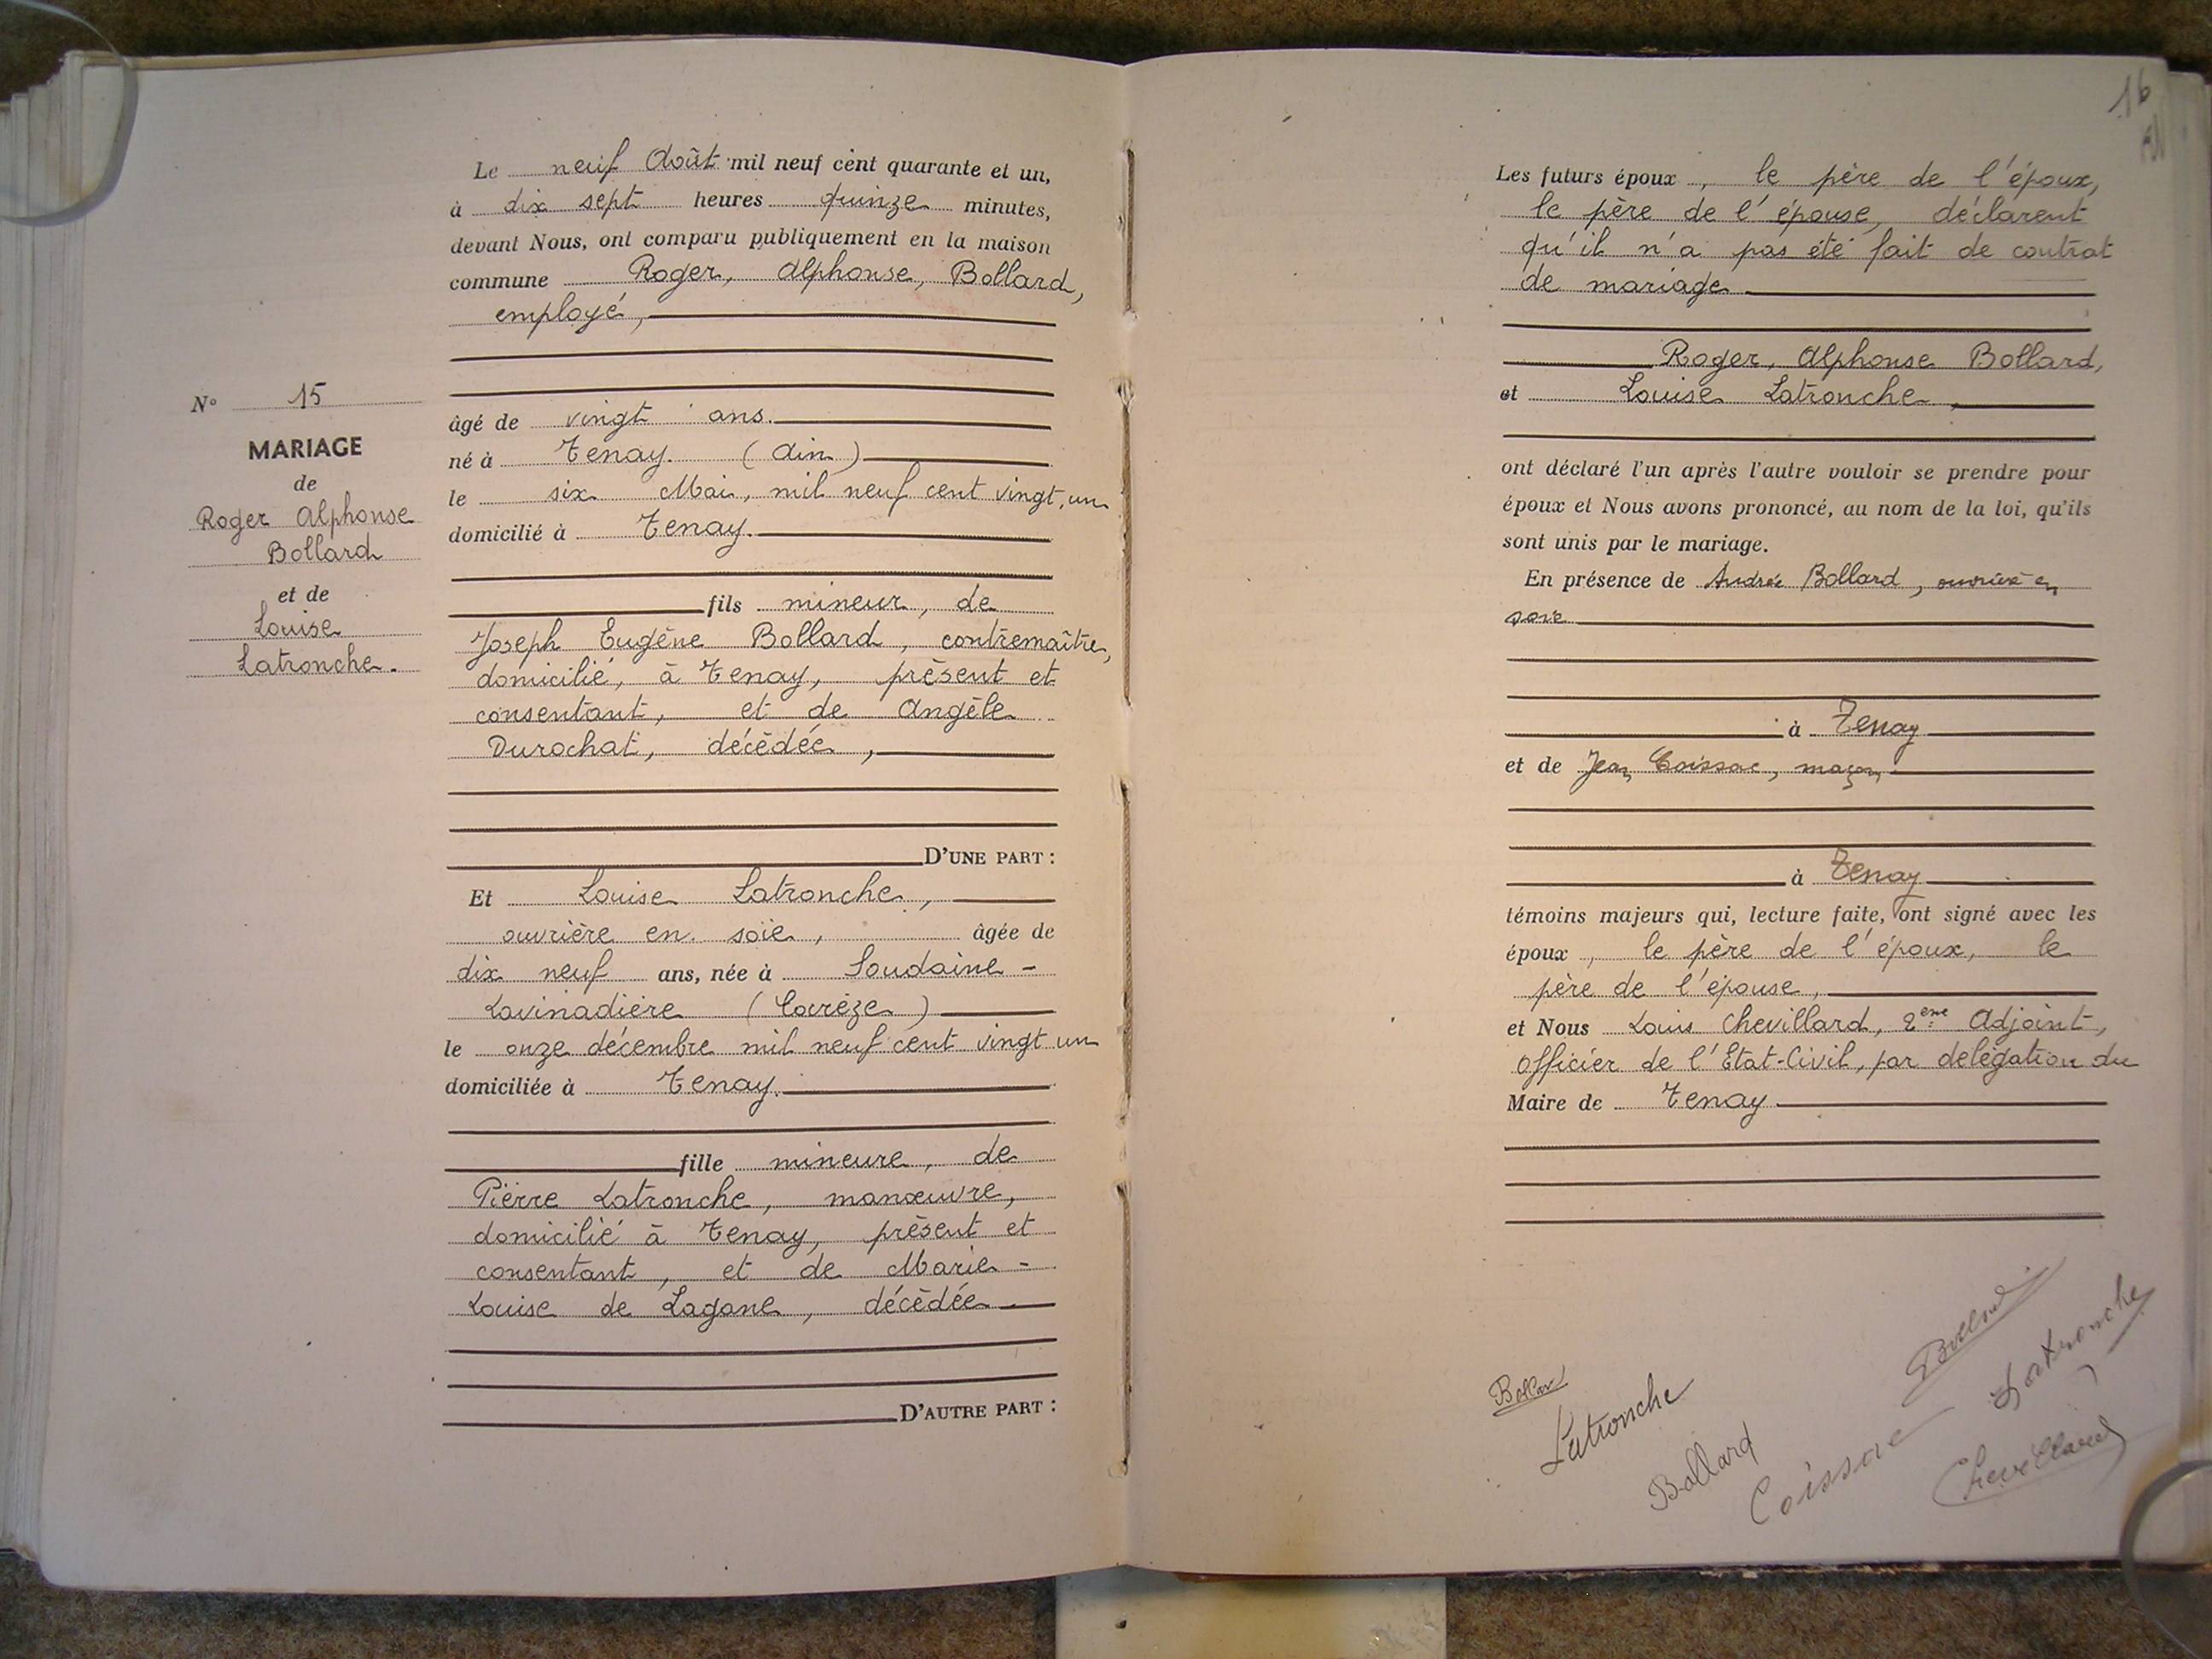 Le neuf Août mil neuf cent quarante et un,
à dix sept heures quinze minutes,
devant Nous, ont comparu publiquement en la maison
commune Roger, Alphonse, Bollard,
employé,
N° 15
MARIAGE
de
Roger Alphonse
Bollard
et de
Louise
Latronche.
âgé de vingt ans.
né à Tenay. (Ain)
le six Mai, mil neuf cent vingt, un
domicilié à Tenay.
fils mineur, de
Joseph Eugène Bollard, contremaître,
domicilié, à Tenay, présent et
consentant, et de Angèle
Durochat, décédée,
D'UNE PART :
Et Louise Latronche,
ouvrière en soie, âgée de
dix neuf ans, née à Soudaine-
Lavinadière (Corrèze)
le onze décembre mil neuf cent vingt un
domiciliée à Tenay.
fille mineure, de
Pierre Latronche, manœuvre,
domicilié à Tenay, présent et
consentant, et de Marie-
Louise de Lagane, décédée
D'AUTRE PART :
16
Les futurs époux, le père de l'époux,
le père de l'épouse, déclarent
qu'il n'a pas été fait de contrat
de mariage
Roger, Alphonse Bollard,
et Louise Latronche,
ont déclaré l'un après l'autre vouloir se prendre pour
époux et Nous avons prononcé, au nom de la loi, qu'ils
sont unis par le mariage.
En présence de Andrée Bollard, ouvrière en
soie
à Tenay
et de Jean Coissac, maçon,
à Tenay
témoins majeurs qui, lecture faite, ont signé avec les
époux, le père de l'époux, le
père de l'épouse,
et Nous Louis Chevillard, 2ème Adjoint,
Officier de l'Etat-Civil, par délégation du
Maire de Tenay
Bollard
Latronche
Bollard
Coissac
Bollard
Latronche
Chevillard